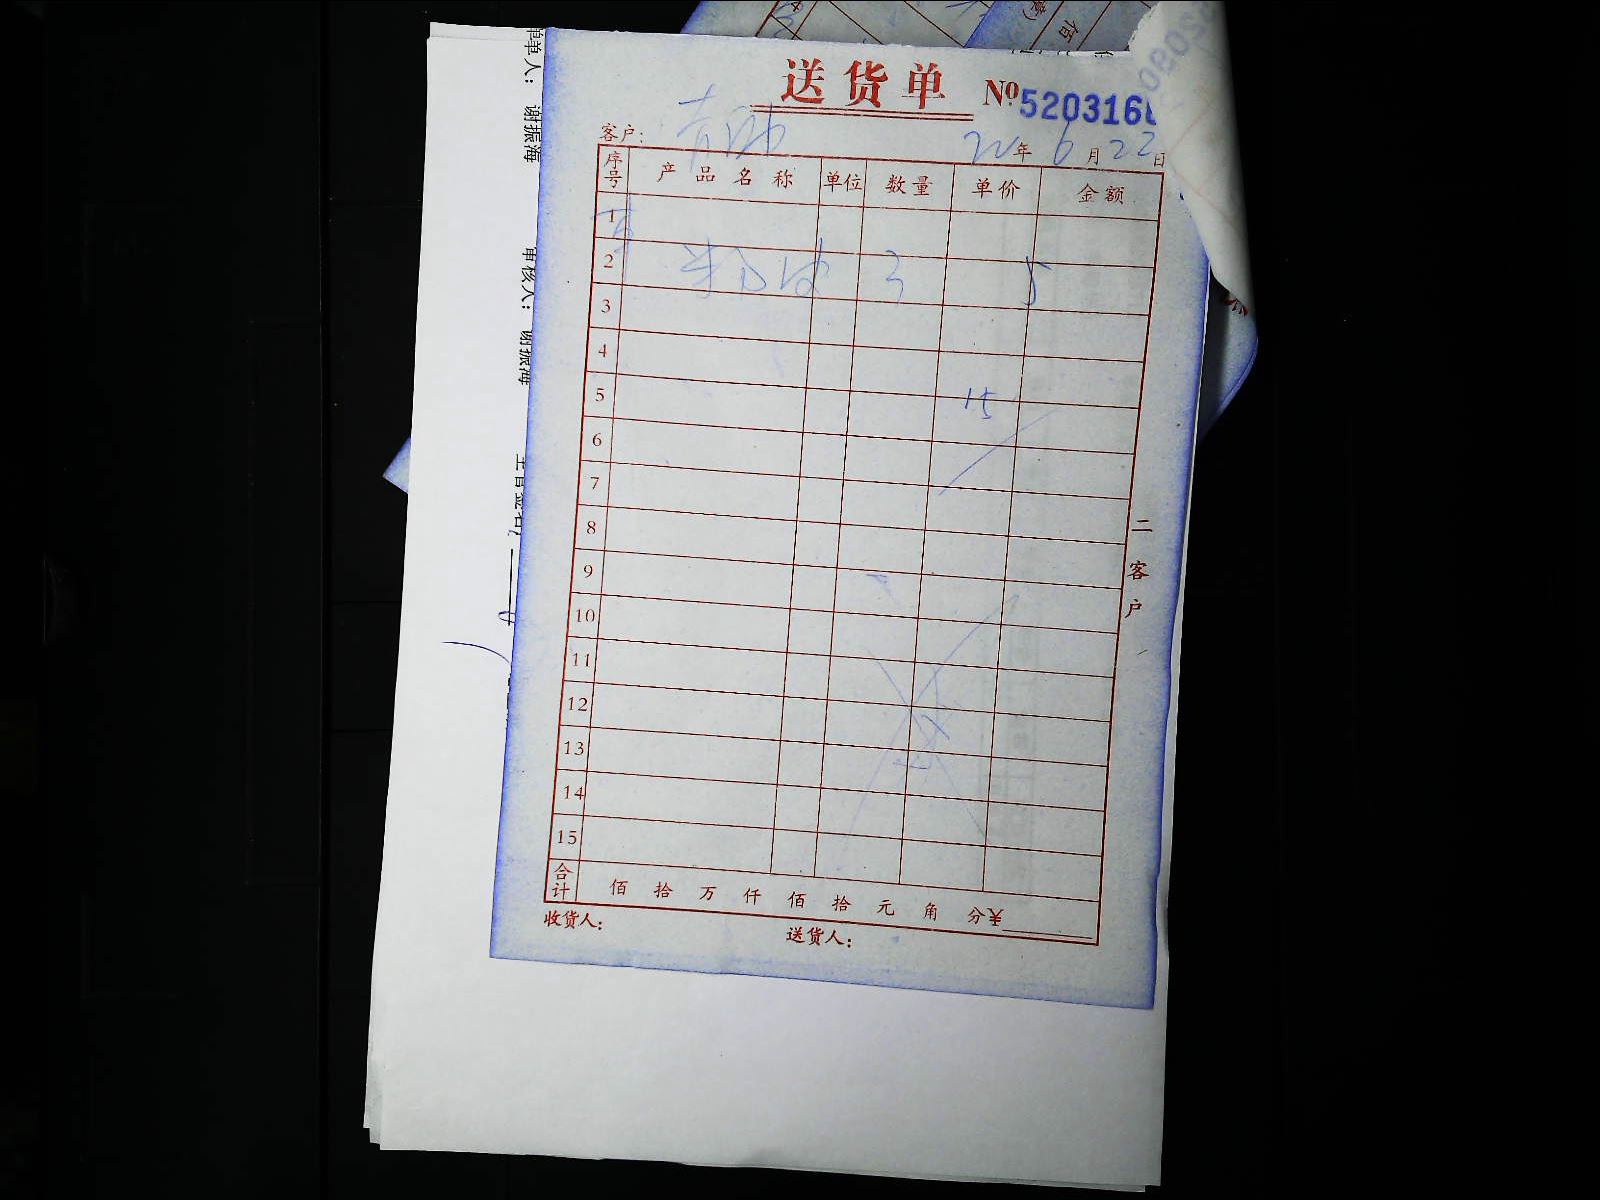 送货单 №520316
客户: 22年6月22日
序号 产品名称 单位 数量 单价 金额
1
2 3 5
3
4
5 15
6
7
8
9
10
11
12
13
14
15
合计 佰 拾 万 仟 佰 拾 元 角 分¥
收货人: 送货人:
二客户
谢振海
审核人: 谢振海